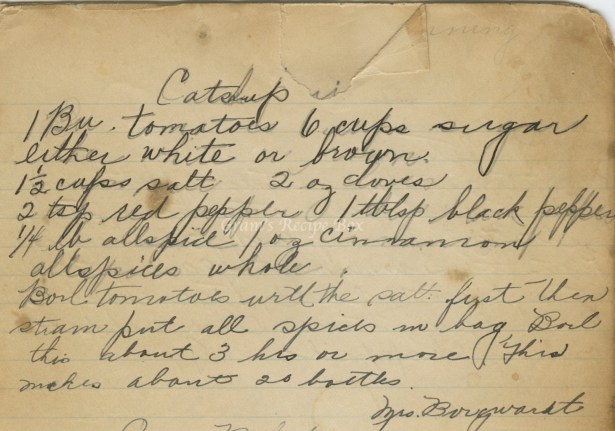 Canning
Catsup
1 Bu. tomatoes 6 cups sugar
either white or brown.
1½ cups salt 2 oz cloves
2 tsp red pepper 1 tblsp black pepper
¼ lb allspice 1 oz cinnamon
allspices whole.
Boil tomatoes with the salt first then
stram put all spices in bag Boil
this about 3 hrs or more. This
makes about 20 bottles.
Mrs. Borgwardt